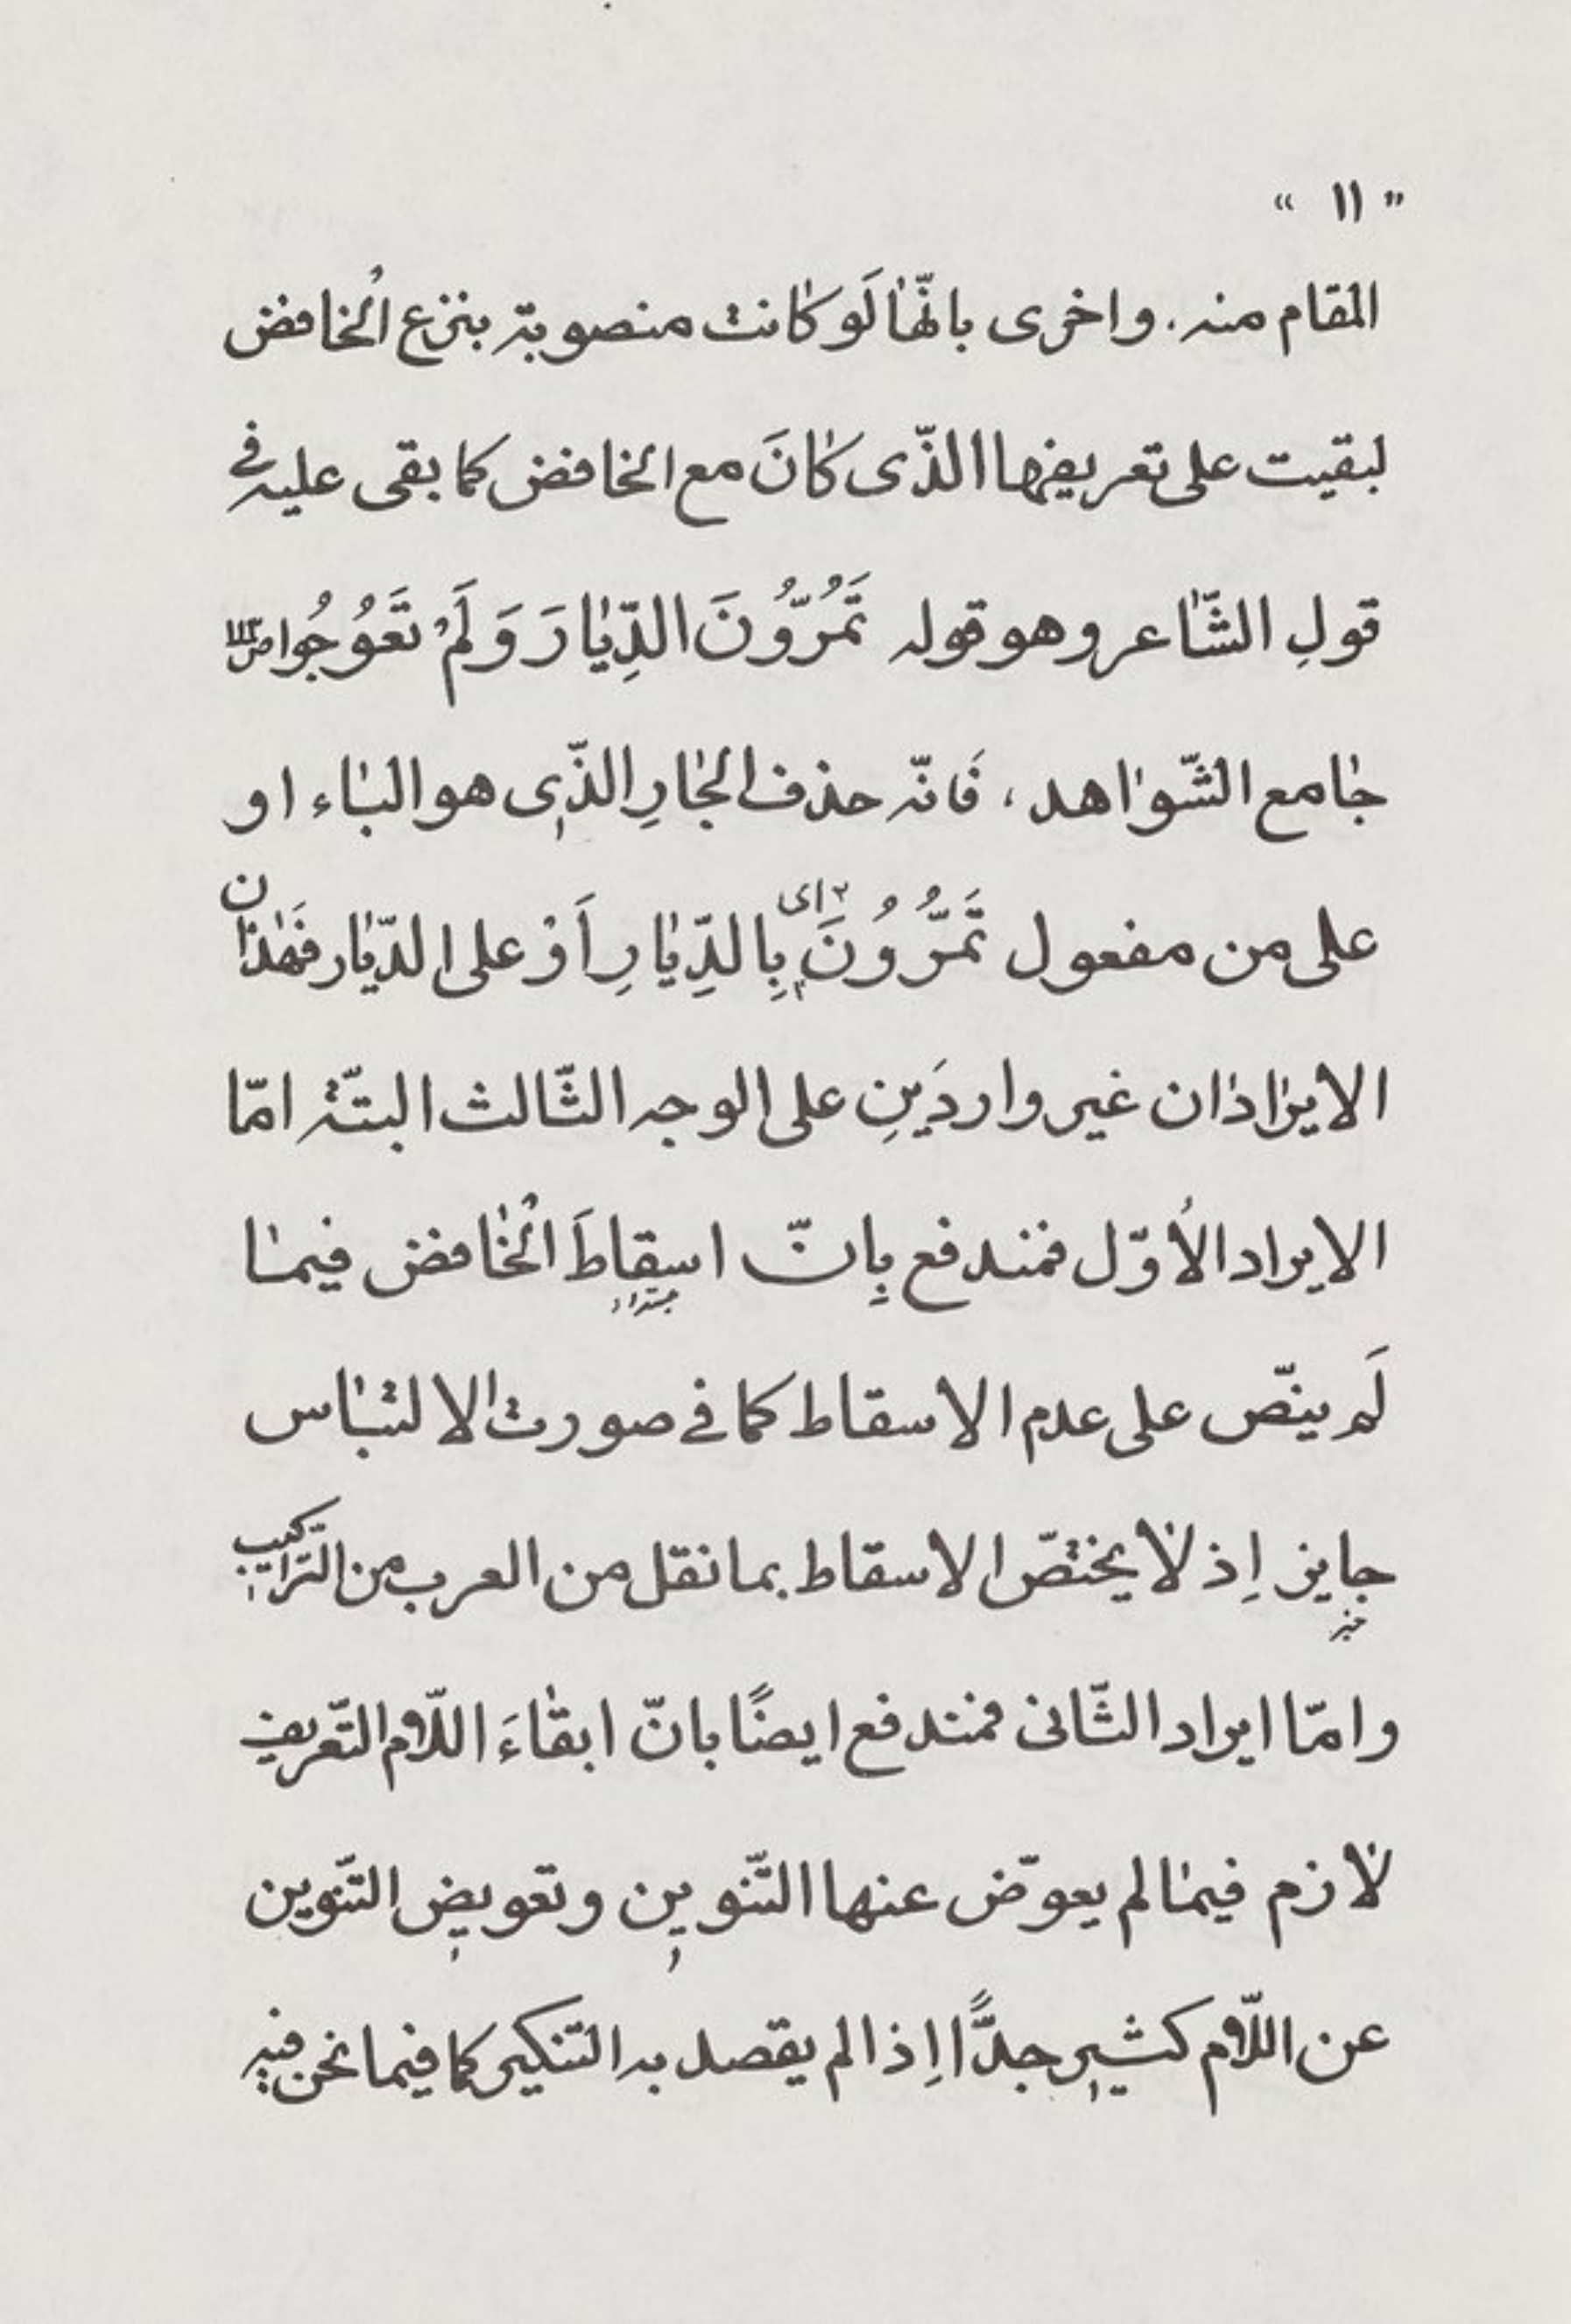 « ١١ »
المقام منه . واخرى بانّها لَو كانت منصوبة بنزع الخافض
لبقيت على تعريفها الذّى كانَ مع الخافض كما بقى عليه فى
قولِ الشّاعر وهو قوله تَمُرُّونَ الدِّيارَ وَلَمْ تَعُوجُوا
جامع الشّواهد ، فَانّه حذف الجارِ الذّى هو الباء او
على من مفعول تَمُرُّونَ اى بِالدِّيارِ اَوْ على الدّيار فَهٰذان
الايرادان غير واردَينِ على الوجه الثّالث البتّة امّا
الايراد الأوّل فمندفع بِانّ اسقاطَ الخافض فيما
لَم ينصّ على عدم الاسقاط كما فى صورت الالتباس
جايز اِذ لا يختصّ الاسقاط بما نقل من العرب من التّراكيب
وامّا ايراد الثّانى فمندفع ايضًا بانّ ابقاءَ اللّام التّعريف
لازم فيما لم يعوّض عنها التّنوين وتعويض التّنوين
عن اللّام كثير جدًّا اِذا لم يقصد به التنكير كما فيما نحن فيه